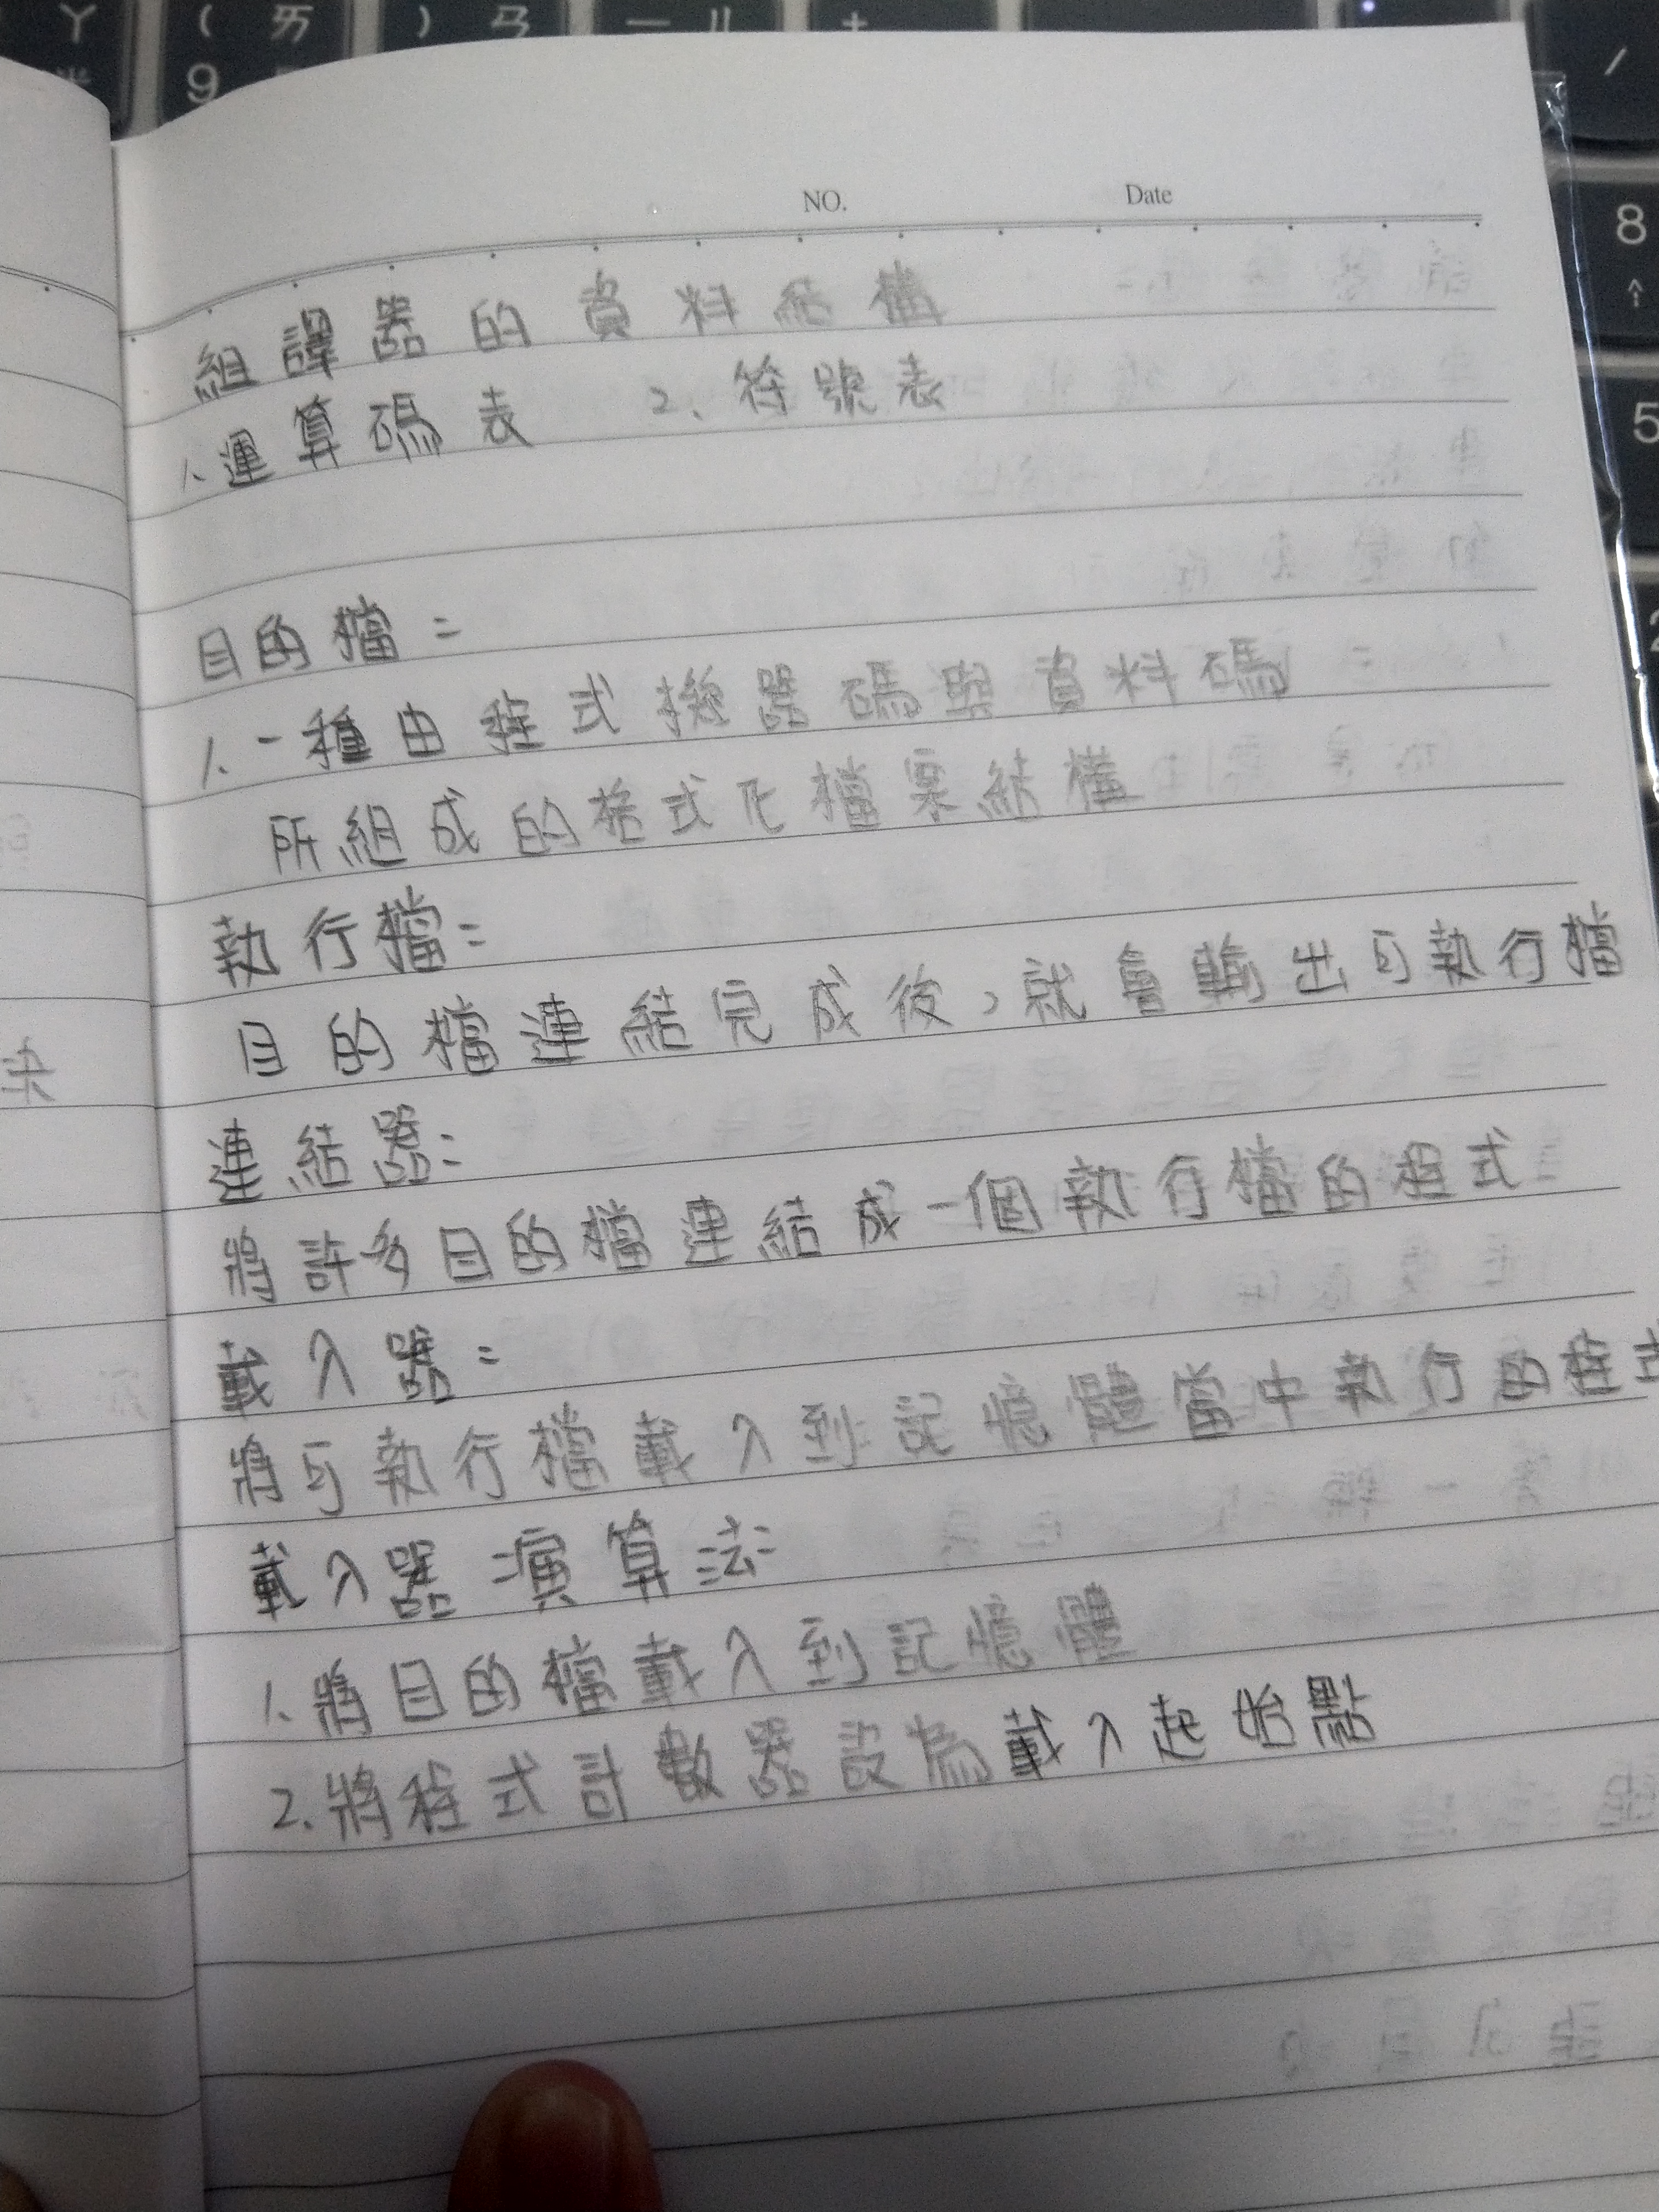 NO. Date
組譯器的資料結構
1、運算碼表 2、符號表
目的檔:
1、一種由程式機器碼與資料碼
所組成的格式化檔案結構
執行檔:
目的檔連結完成後,就會輸出可執行檔
連結器:
將許多目的檔連結成一個執行檔的程式
載入器:
將可執行檔載入到記憶體當中執行的程式
載入器演算法:
1、將目的檔載入到記憶體
2.將程式計數器設為載入起始點
ㄚ ( ㄞ ) ㄢ ㄦ
9
/
8
5
2
决